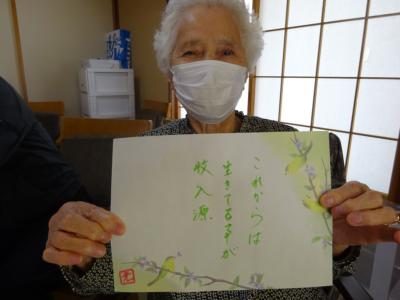 これからは
生きてる事が
収入源